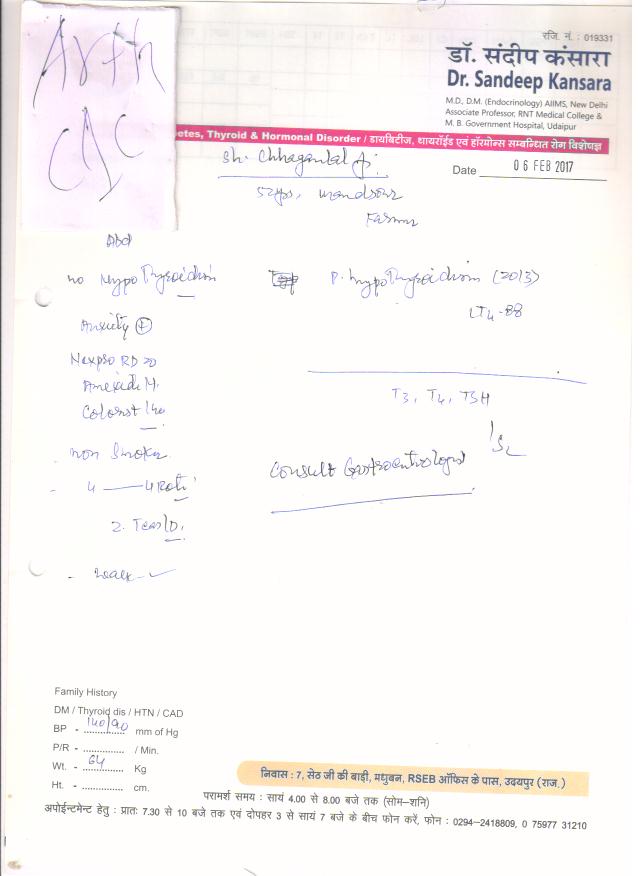 Arth
रजि. नं. : 019331
डॉ. संदीप कंसारा
Dr. Sandeep Kansara
M.D., D.M. (Endocrinology) AIIMS, New Delhi
Associate Professor, RNT Medical College &
M. B. Government Hospital, Udaipur
etes, Thyroid & Hormonal Disorder / डायबिटीज, थायरॉईड एवं हॉरमोन्स सम्बन्धित रोग विशेषज्ञ
Sh. Chhaganlal Ji
Date 06 FEB 2017
52yrs, mandsour
Farmer
Abd
no Hypothyroidism P. hypothyroidism (2013)
LT4-88
Anxiety +
Nexpro RD 20
Amexide H.
T3, T4, TSH
non Smoker
Consult Gastroentrologist
4 — 4 Roti
2. Tea/D.
- walk - ✓
Family History
DM / Thyroid dis / HTN / CAD
BP - 140/90 mm of Hg
P/R - ............... / Min.
Wt. - 64 Kg
Ht. - ............... cm.
निवास : 7, सेठ जी की बाड़ी, मधुबन, RSEB ऑफिस के पास, उदयपुर (राज.)
परामर्श समय : सायं 4.00 से 8.00 बजे तक (सोम–शनि)
अपोईन्टमेन्ट हेतु : प्रातः 7.30 से 10 बजे तक एवं दोपहर 3 से सायं 7 बजे के बीच फोन करें, फोन : 0294–2418809, 0 75977 31210